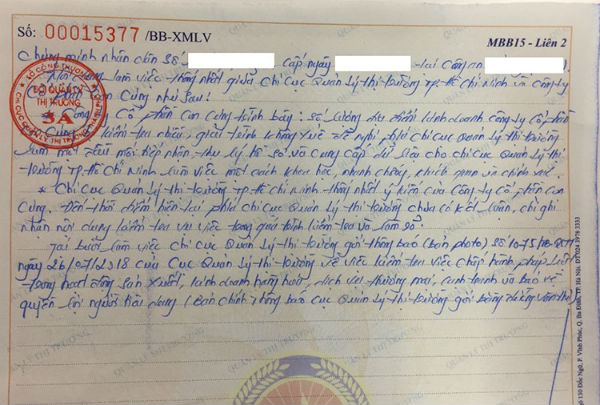 Số: 00015377 /BB-XMLV
MBB15 - Liên 2
Chứng minh nhân dân số cấp ngày tại Công an
Nội dung làm việc thống nhất giữa Chi Cục Quản lý thị trường TP. Hồ Chí Minh và Công ty
Cổ phần Con Cưng như sau:
Công ty Cổ phần Con Cưng trình bày: số lượng địa điểm kinh doanh Công ty Cổ phần
Con Cưng kiểm tra nhiều, đề nghị phía Chi Cục Quản lý thị trường
làm một đầu mối tiếp nhận, thụ lý hồ sơ và cung cấp dữ liệu cho Chi Cục Quản lý thị
trường TP. Hồ Chí Minh làm việc một cách khoa học, nhanh chóng, và chính xác.
* Chi Cục Quản lý thị trường TP. Hồ Chí Minh thống nhất ý kiến của Công ty Cổ phần Con
Cưng. Đến thời điểm hiện tại phía Chi Cục Quản lý thị trường chưa có kết luận, chỉ ghi
nhận nội dung kiểm tra vụ việc trong quá trình kiểm tra và làm rõ.
Tại buổi làm việc Chi Cục Quản lý thị trường gửi thông báo (bản photo) số
ngày 26/07/2018 của Cục Quản lý thị trường về việc kiểm tra việc chấp hành pháp luật
trong hoạt động sản xuất, kinh doanh hàng hóa, dịch vụ thương mại, và bảo vệ
quyền lợi người tiêu dùng (bản chính thông báo Cục Quản lý thị trường gửi bằng đường văn thư).
SỞ CÔNG THƯƠNG
ĐỘI QUẢN LÝ
THỊ TRƯỜNG
3A
130 Đốc Ngữ, P. Vĩnh Phúc, Q. Ba Đình, TP Hà Nội, DT: 024 3978 3333